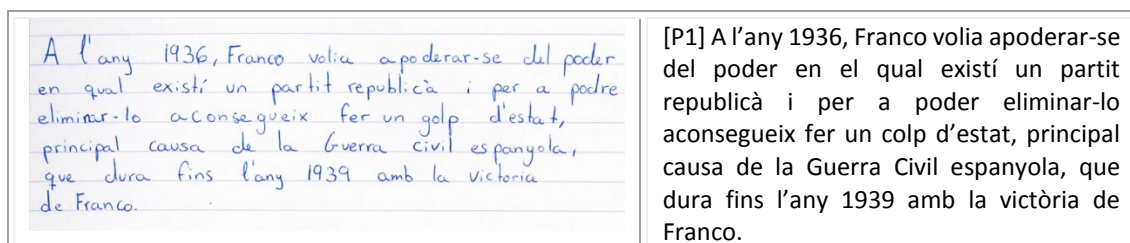 A l'any 1936, Franco volia apoderar-se del poder
en qual existí un partit republicà i per a podre
eliminar-lo aconsegueix fer un golp d'estat,
principal causa de la Guerra civil espanyola,
que dura fins l'any 1939 amb la victoria
de Franco.
[P1] A l’any 1936, Franco volia apoderar-se
del poder en el qual existí un partit
republicà i per a poder eliminar-lo
aconsegueix fer un colp d’estat, principal
causa de la Guerra Civil espanyola, que
dura fins l’any 1939 amb la victòria de
Franco.